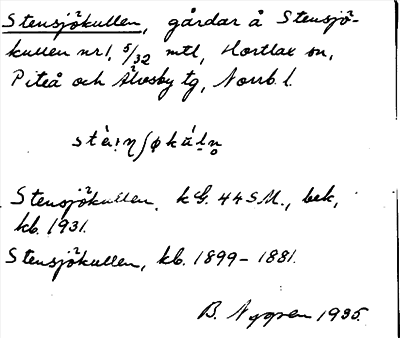 Stensjökullen, gårdar å Stensjö-
kullen nr 1, 5/32 mtl, Hortlax sn,
Piteå och Älvsby tg, Norrb. l.
Stensjökullen, k G. 44 S M., bek,
kb. 1931.
Stensjökullen, kb. 1899-1881.
B. Nygren 1935.